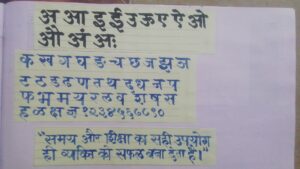 अ आ इ ई उ ऊ ए ऐ ओ
औ अं अः
क ख ग घ ङ च छ ज झ ञ
ट ठ ड ढ ण त थ द ध ज प
फ भ म य र ल व श ष स
ह ळ क्ष ज्ञ १२३४५६७८९०
"समय और शिक्षा का सही उपयोग
ही व्यक्ति को सफल बना देता है।"